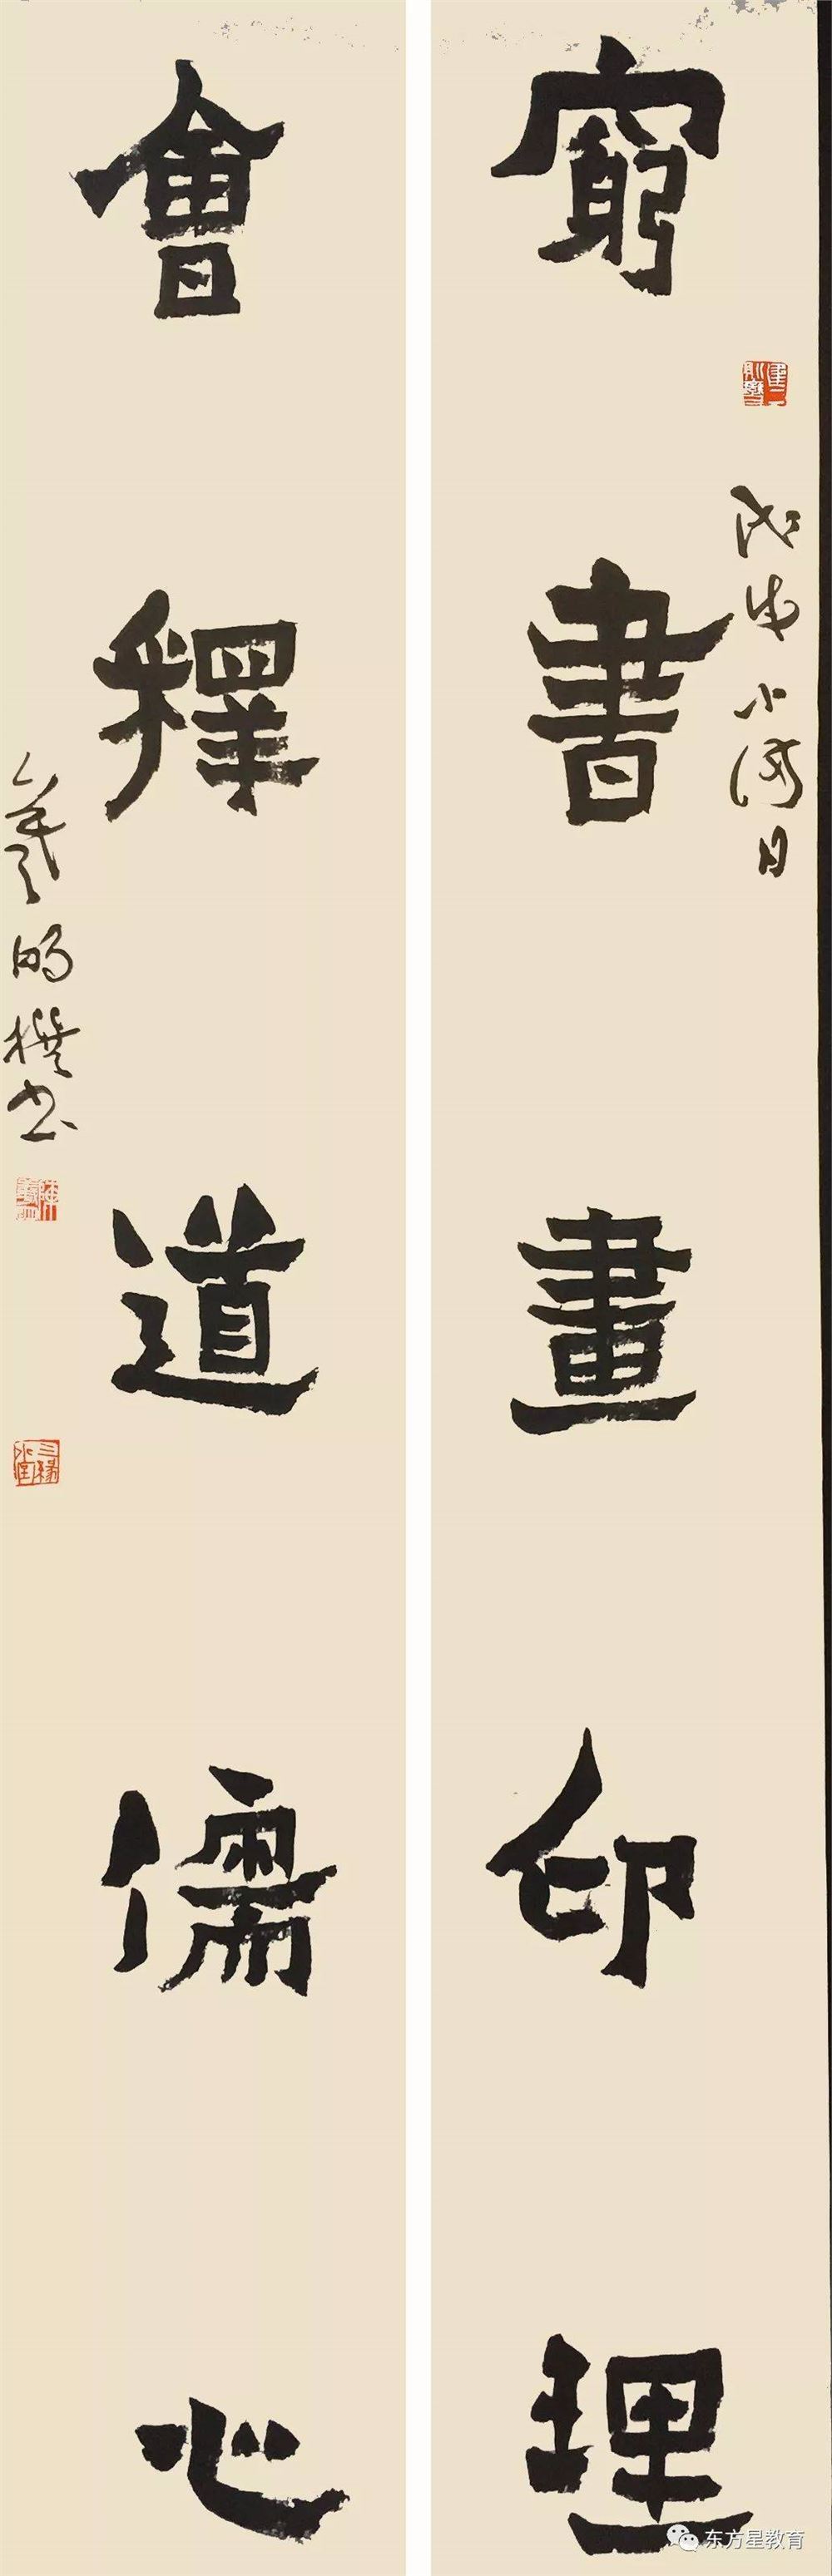 窮書畫印理
戊戌小滿日
會釋道儒心
撰书
东方星教育